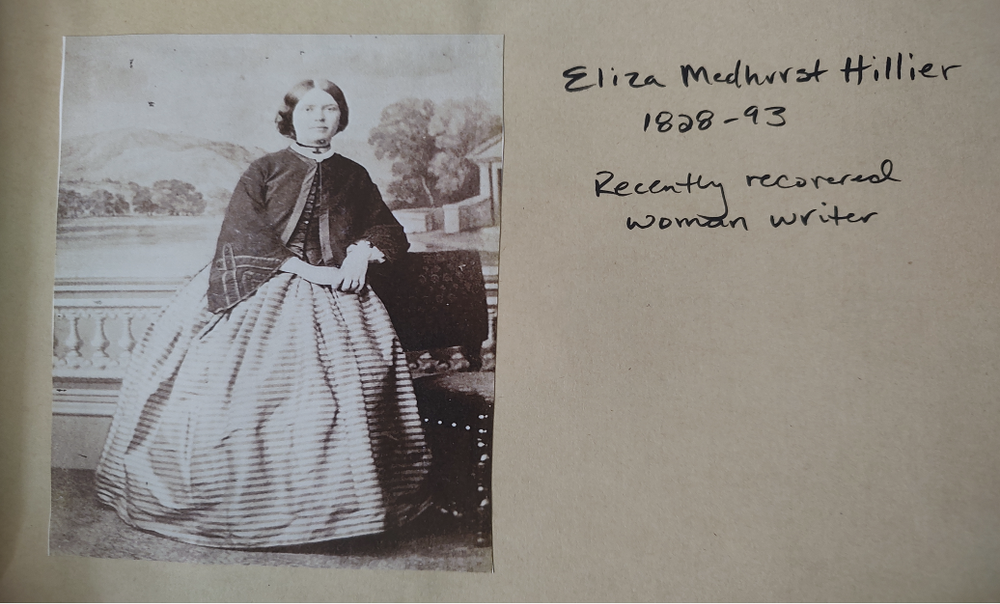 Eliza Medhurst Hillier
1828-93
Recently recovered
woman writer